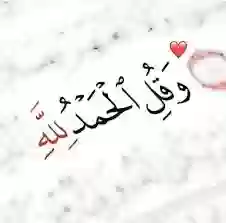 وَقُلِ الْحَمْدُ لِلَّهِ